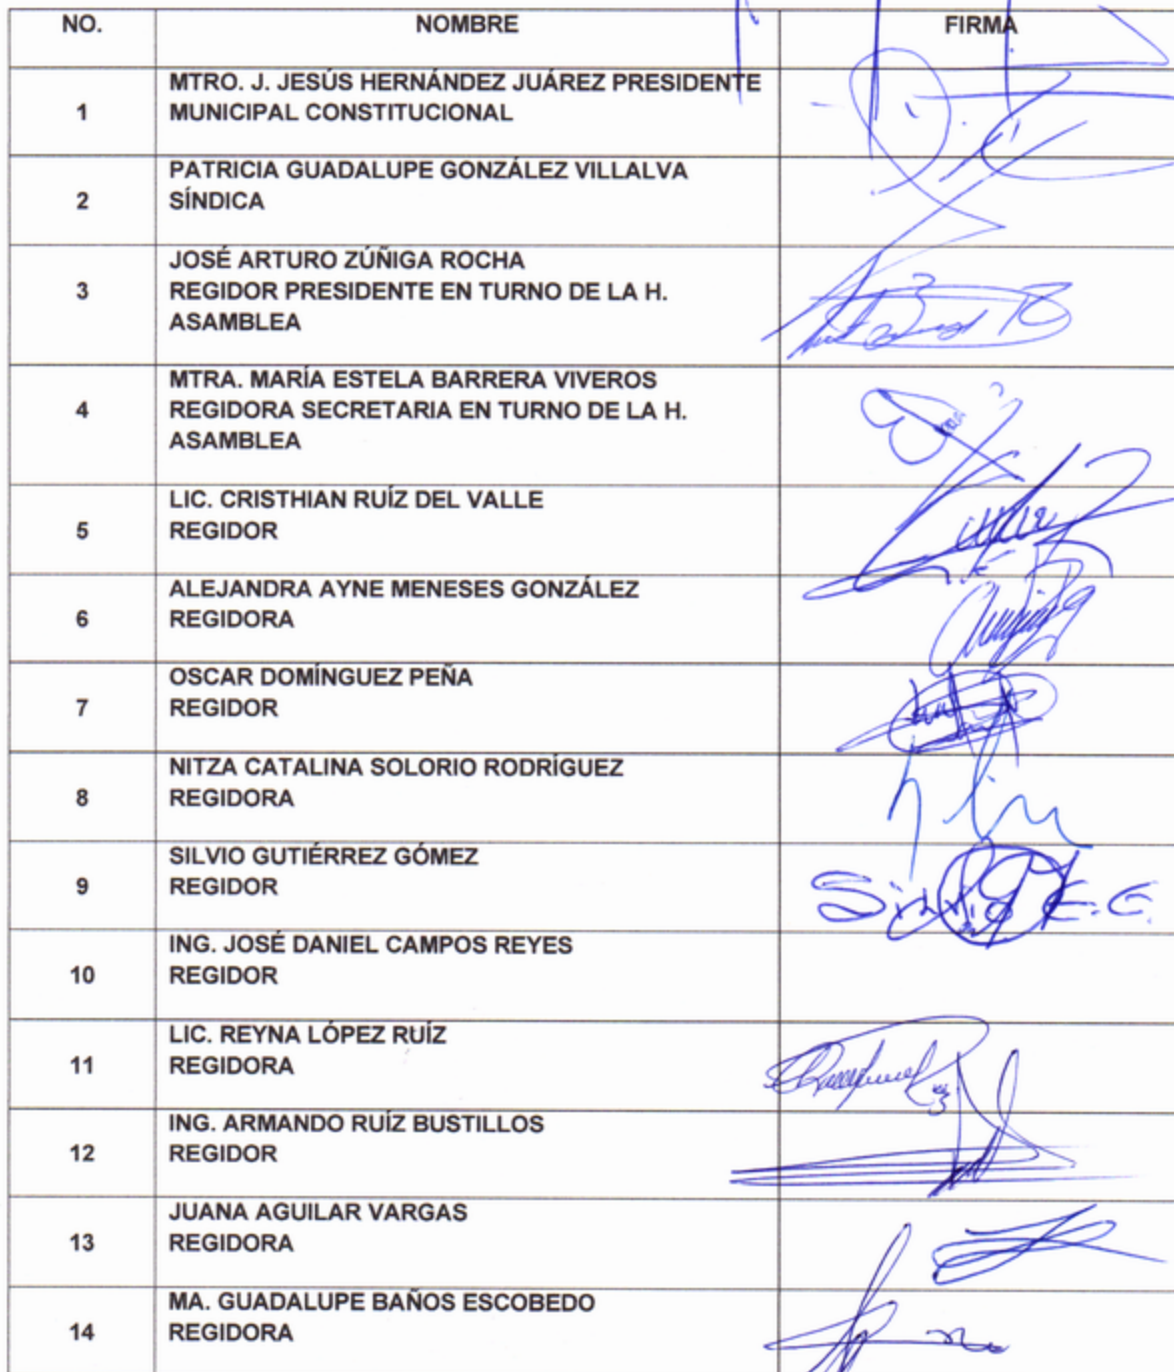 NO. NOMBRE FIRMA
1 MTRO. J. JESÚS HERNÁNDEZ JUÁREZ PRESIDENTE
MUNICIPAL CONSTITUCIONAL
2 PATRICIA GUADALUPE GONZÁLEZ VILLALVA
SÍNDICA
3 JOSÉ ARTURO ZÚÑIGA ROCHA
REGIDOR PRESIDENTE EN TURNO DE LA H.
ASAMBLEA
4 MTRA. MARÍA ESTELA BARRERA VIVEROS
REGIDORA SECRETARIA EN TURNO DE LA H.
ASAMBLEA
5 LIC. CRISTHIAN RUÍZ DEL VALLE
REGIDOR
6 ALEJANDRA AYNE MENESES GONZÁLEZ
REGIDORA
7 OSCAR DOMÍNGUEZ PEÑA
REGIDOR
8 NITZA CATALINA SOLORIO RODRÍGUEZ
REGIDORA
9 SILVIO GUTIÉRREZ GÓMEZ
REGIDOR
10 ING. JOSÉ DANIEL CAMPOS REYES
REGIDOR
11 LIC. REYNA LÓPEZ RUÍZ
REGIDORA
12 ING. ARMANDO RUÍZ BUSTILLOS
REGIDOR
13 JUANA AGUILAR VARGAS
REGIDORA
14 MA. GUADALUPE BAÑOS ESCOBEDO
REGIDORA